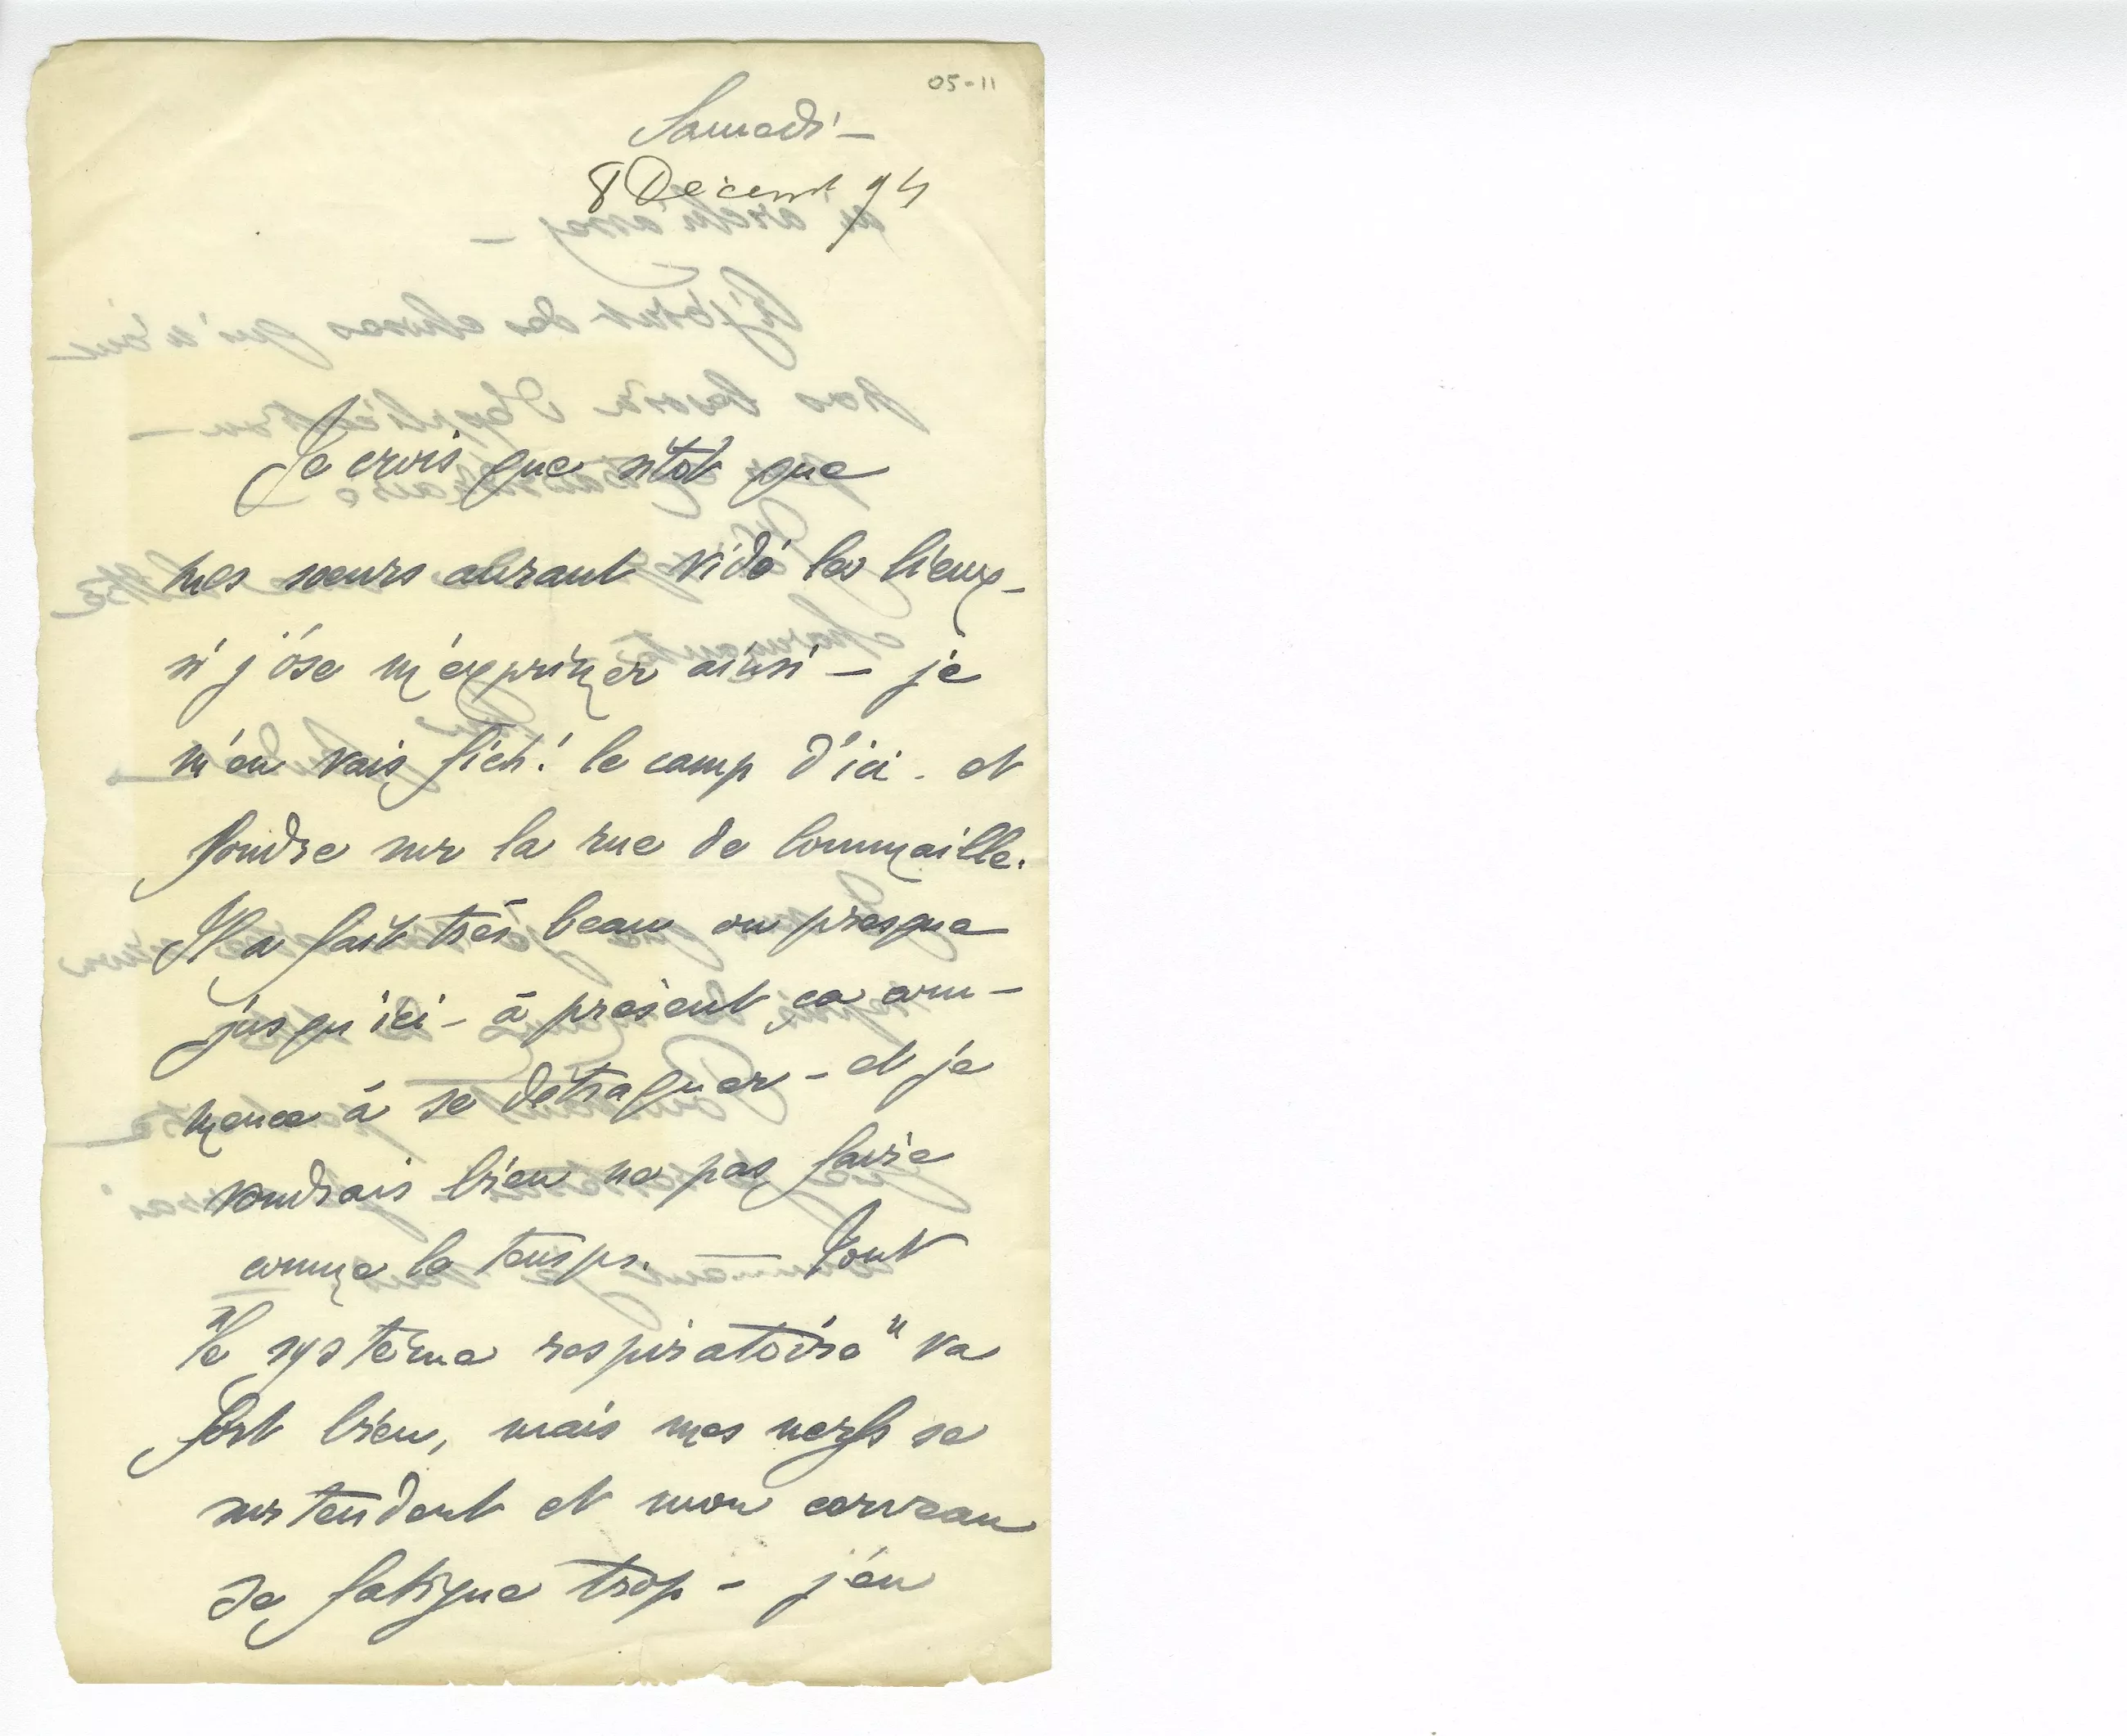 05-11
Samedi –
8 Décemb 94
Je crois que sitôt que
mes sœurs auront vidé les lieux –
si j'ôse m'exprimer ainsi – je
m'en vais fich! le camp d'ici. et
fondre sur la rue de Commaille.
Il a fait très beau ou presque
jusqu'ici – à présent ça com-
mence à se détraquer – et je
voudrais bien ne pas faire
comme le temps. — Tout
"le système respiratoire" va
fort bien, mais mes nerfs se
surtendent et mon cerveau
se fatigue trop – j'en